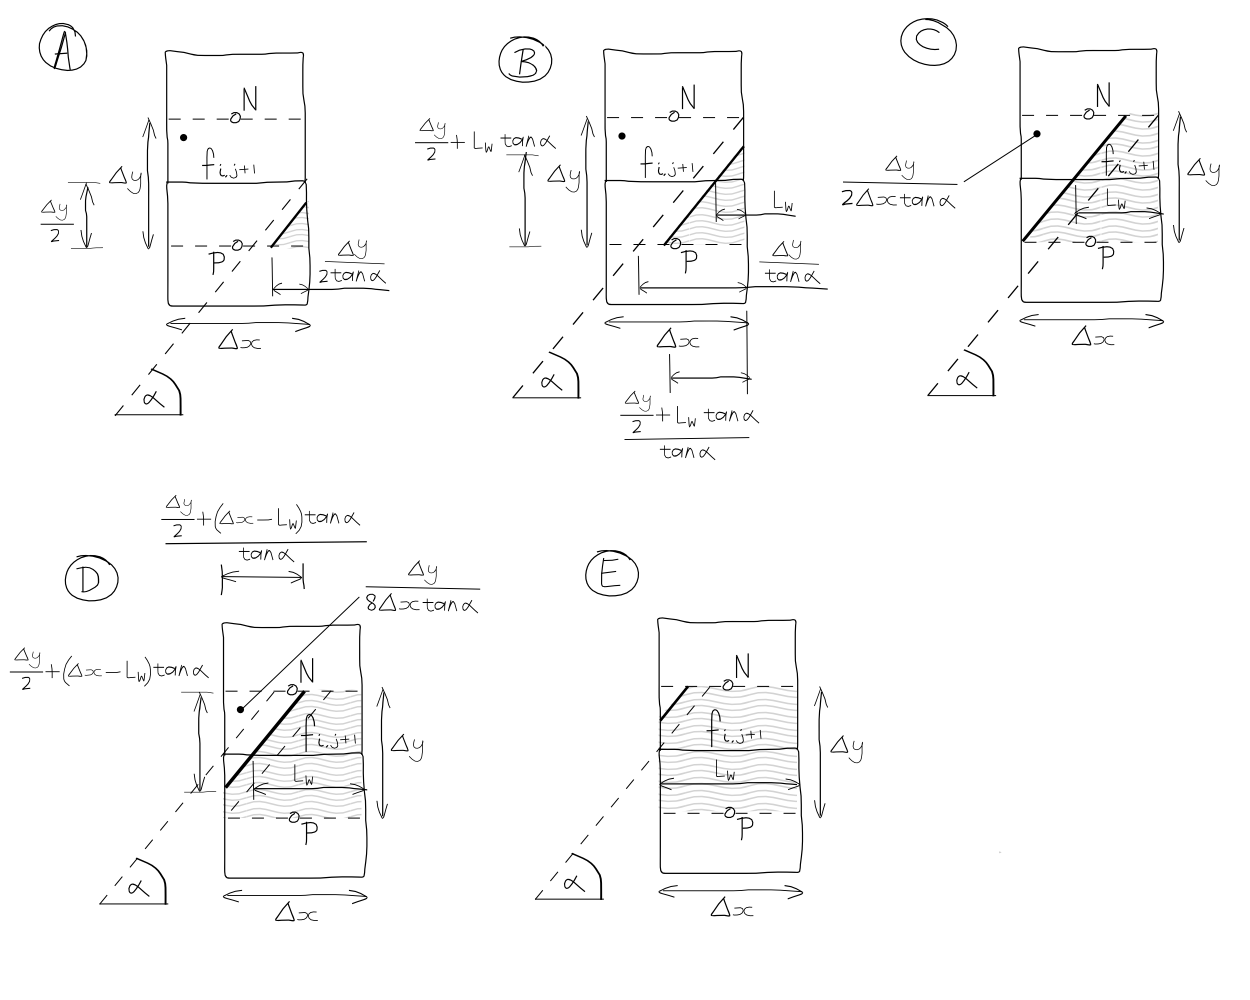 A
N
Δy
f i,j+1
Δy/2
P
Δy/(2tanα)
Δx
α
B
N
Δy/2 + L_W tanα
Δy
f i,j+1
L_W
P
Δy/tanα
Δx
α
(Δy/2 + L_W tanα)/tanα
C
N
Δy/(2Δxtanα)
f i,j+1
Δy
L_W
P
Δx
α
D
(Δy/2 + (Δx − L_W)tanα)/tanα
Δy/(8Δxtanα)
Δy/2 + (Δx − L_W)tanα
N
f i,j+1
Δy
L_W
P
α
Δx
E
N
f i,j+1
Δy
L_W
P
α
Δx